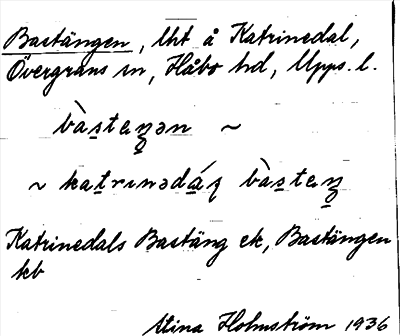 Bastängen, lht å Katrinedal,
Övergrans sn, Håbo hd, Upps. l.
bàstaŋən ~
~ katrɩnədáɭ bàstaŋ
Katrinedals Bastäng ek, Bastängen
kb
Stina Holmström 1936